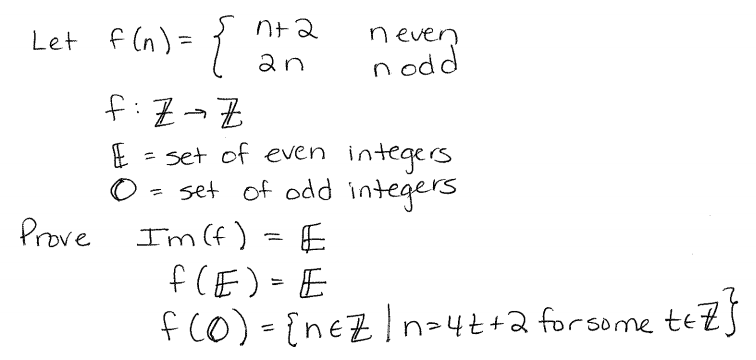 Let f(n) = { n+2 n even
2n n odd
f: ℤ → ℤ
𝔼 = set of even integers
𝕆 = set of odd integers
Prove Im(f) = 𝔼
f(𝔼) = 𝔼
f(𝕆) = {n∈ℤ | n=4t+2 for some t∈ℤ}